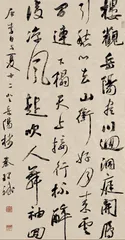 樓觀岳陽盡川迥洞庭開雁
引愁心去山銜好月來雲
間下榻天上接行杯醉
後涼風起吹人舞袖回
李白夏十二登岳陽樓